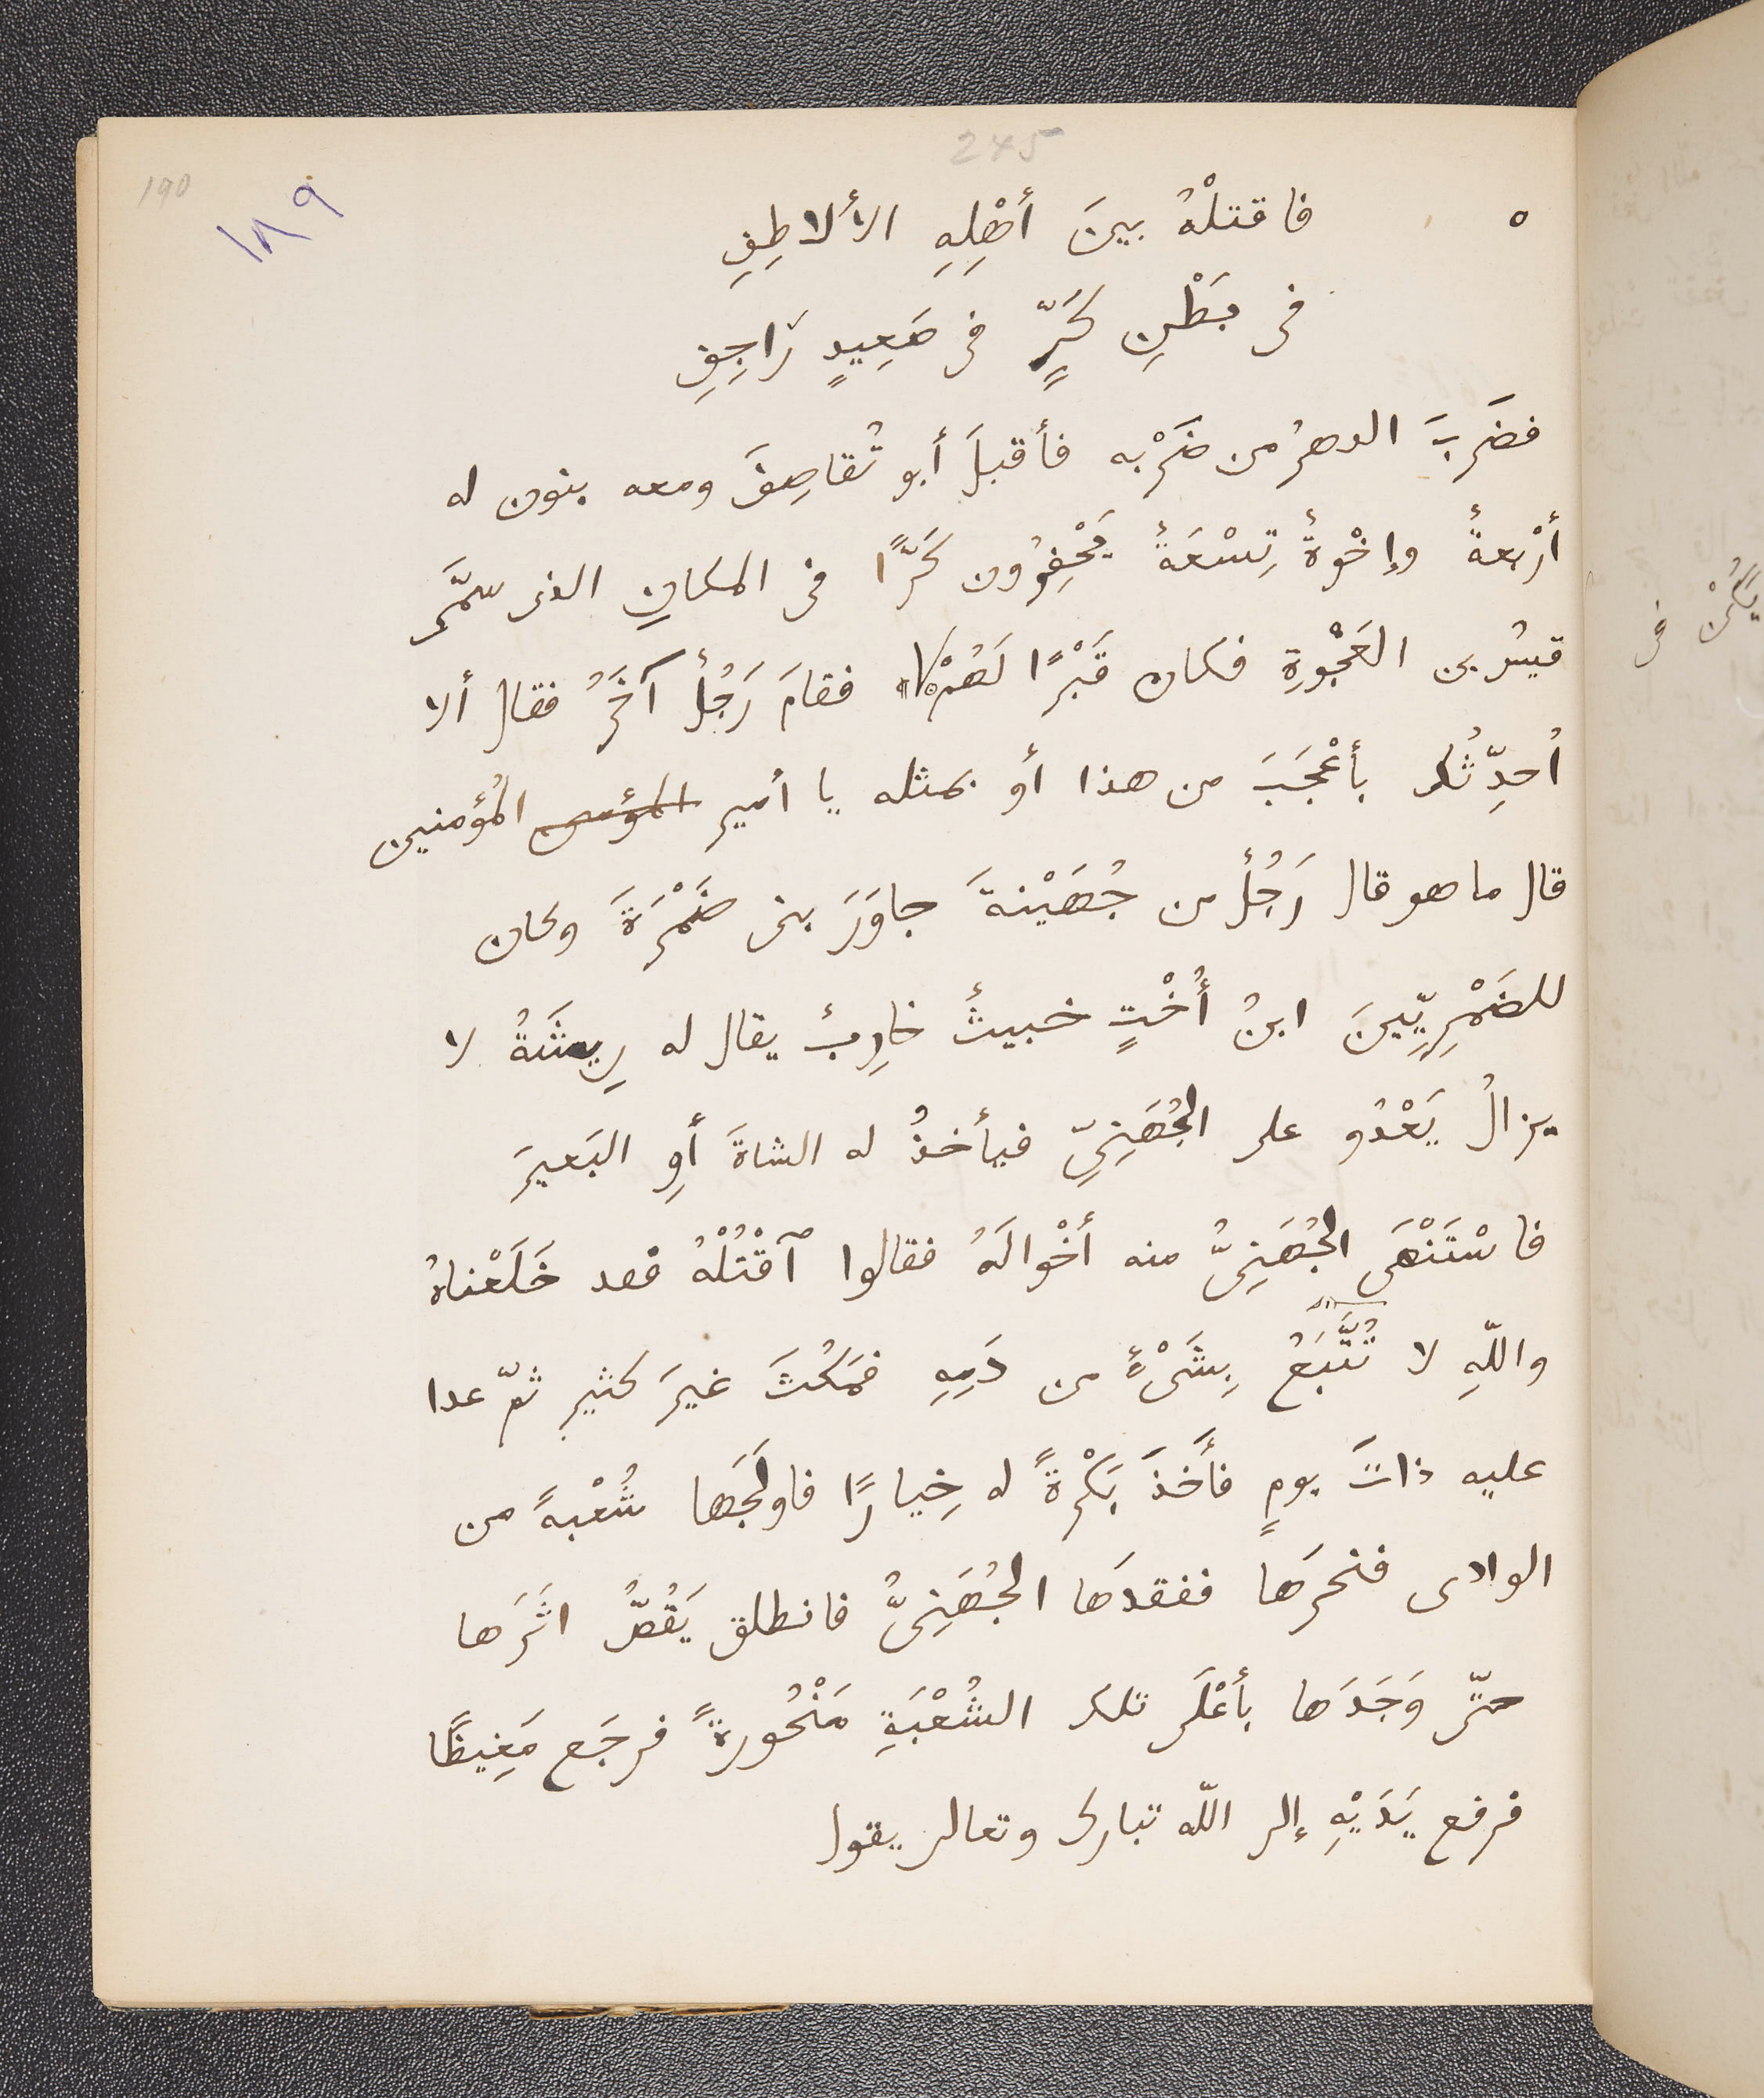 245
190
١٨٩
٥ فاقتلْهُ بينَ أهْلِهِ الألاطِفِ
فى بَطْنِ كَرٍّ فى صَعِيدٍ رَاجِفِ
فضَربَ الدهرُ من ضَرْبه فأقبلَ أبو تُقاصِفَ ومعه بنون له
أرْبعةٌ وإخْوةٌ تِسْعَةٌ يَحْفِرُون كَرًّا فى المكانِ الذى سمَّى
قيسُ بن العَجْوةِ فكان قَبْرًا لَهُمْ فقامَ رَجُلٌ آخَرُ فقال ألا
اُحدِّثُك بأعْجَبَ من هذا أو بمثله يا أمير المؤمنين المُؤمنين
قال ما هو قال رَجُلٌ من جُهَيْنةَ جاوَرَ بنى ضَمْرَةَ وكان
للضَمْرِيِّينَ ابنُ أُخْتٍ خبيثٌ خارِبٌ يقال له رِيشَةُ لا
يزالُ يَعْدُو على الجُهَنِىِّ فيأخذُ له الشاةَ أوِ البَعيرَ
فاسْتَنْهَى الجُهَنِىُّ منه أخْوالَهُ فقالوا ٱقْتُلْهُ فقد خَلَعْناهُ
واللّهِ لا تُتَّبَعُ بِشَىْءٍ من دَمِهِ فمَكُثَ غيرَ كثيرٍ ثمّ عدا
عليه ذاتَ يومٍ فأَخذَ بَكْرةً له خِيارًا فاولَجَها شُعْبةً من
الوادى فنحرَها ففقدَها الجُهَنِىُّ فانطلق يَقُصُّ اثَرَها
حتّى وَجَدَها بأعْلَى تلك الشُعْبَةِ مَنْحُورةً فرجَع مَغِيظًا
فرفع يَدَيْهِ إلى اللّه تبارك وتعالى يقول
يَكُنْ فى